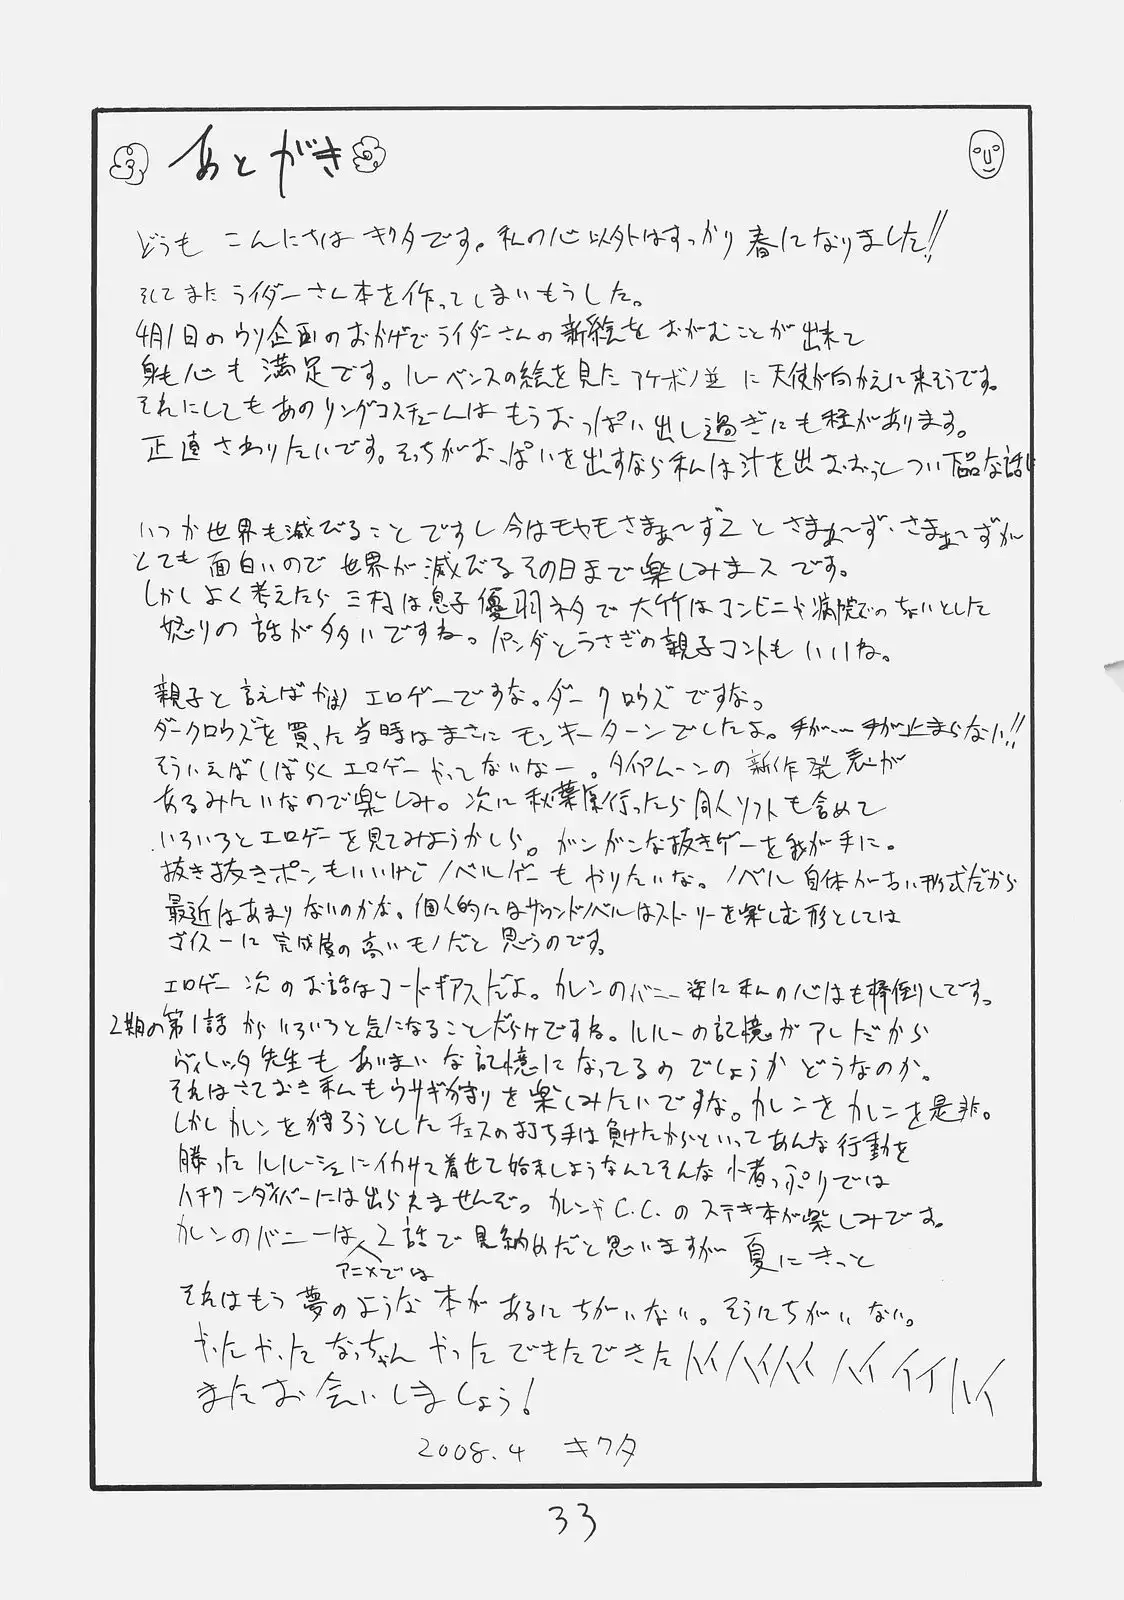 あとがき
どうも こんにちは キクタです。私の心以外はすっかり春になりました!!
そしてまたライダーさん本を作ってしまいもうした。
4月1日のウソ企画のおかげでライダーさんの新絵をおがむことが出来て
身も心も満足です。ルーベンスの絵を見たアケボノ並に天使が向かえに来そうです。
それにしてもあのリングコスチュームはもうおっぱい出し過ぎにも程があります。
正直さわりたいです。そっちがおっぱいを出すなら私は汁を出おおっとつい下品な話に
いつか世界も滅びることですし今はモヤモヤさまぁ〜ず2とさまぁ〜ず・さまぁ〜ずが
とても面白いので世界が滅びるその日まで楽しみまスです。
しかしよく考えたら三村は息子優羽ネタで大竹はコンビニや病院でのちょいとした
怒りの話が多いですね。パンダとうさぎの親子コントもいいね。
親子と言えばかほりエロゲーですな。ダークロウズですな。
ダークロウズを買った当時はまさにモンキーターンでしたよ。手が…手が止まらない!!
そういえばしばらくエロゲーやってないなー。タイプムーンの新作発表が
あるみたいなので楽しみ。次に秋葉原行ったら同人ソフトも含めて
いろいろとエロゲーを見てみようかしら。ガンガンな抜きゲーを我が手に。
抜き抜きポンもいいけどノベルゲーもやりたいな。ノベル自体が古い形式だから
最近はあまりないのかな。個人的にはサウンドノベルはストーリーを楽しむ形としては
ゴイスーに完成度の高いモノだと思うのです。
エロゲー次のお話はコードギアスだよ。カレンのバニー姿に私の心はも棒倒しです。
2期の第1話からいろいろと気になることだらけですね。ルルーの記憶がアレだから
ヴィレッタ先生もあいまいな記憶になってるのでしょうかどうなのか。
それはさておき私もウサギ狩りを楽しみたいですな。カレンをカレンを是非。
しかしカレンを狩ろうとしたチェスの打ち手は負けたからといってあんな行動を
勝ったルルーシュにイカサマ着せて始末しようなんてそんな小者っぷりでは
ハチワンダイバーには出られませんぞ。カレンやC.C.のステキ本が楽しみです。
カレンのバニーはアニメでは2話で見納めだと思いますが夏にきっと
それはもう夢のような本があるにちがいない。そうにちがいない。
やったやったなっちゃんやったでもたできたハイハイハイハイイイハイ
またお会いしましょう!
2008.4 キクタ
33